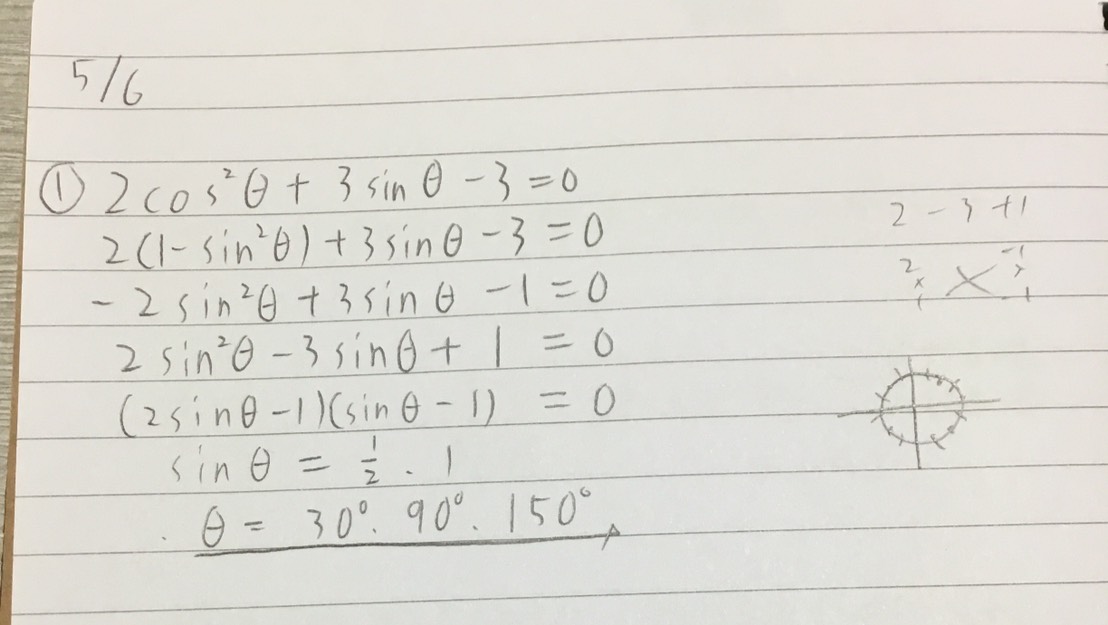 5/6
① 2cos²θ + 3 sin θ - 3 = 0
2(1 - sin²θ) + 3 sin θ - 3 = 0
- 2 sin²θ + 3 sin θ - 1 = 0
2 sin²θ - 3 sin θ + 1 = 0
(2 sin θ - 1)(sin θ - 1) = 0
sin θ = 1/2 . 1
θ = 30°. 90°. 150°
2 - 3 + 1